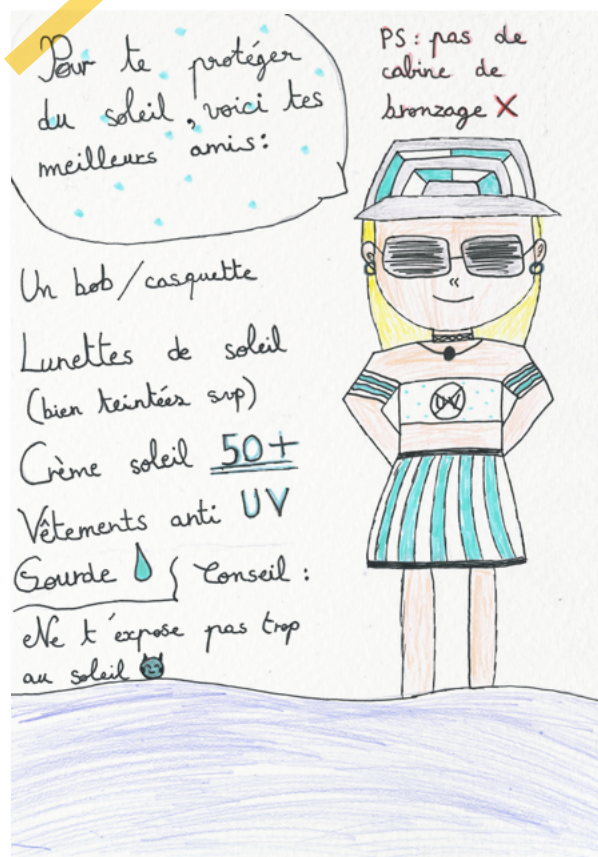 Pour te protéger
du soleil, voici tes
meilleurs amis:
PS: pas de
cabine de
bronzage X
Un bob/casquette
Lunettes de soleil
(bien teintées svp)
Crème soleil 50+
Vêtements anti UV
Gourde
Conseil :
Ne t'expose pas trop
au soleil
UV